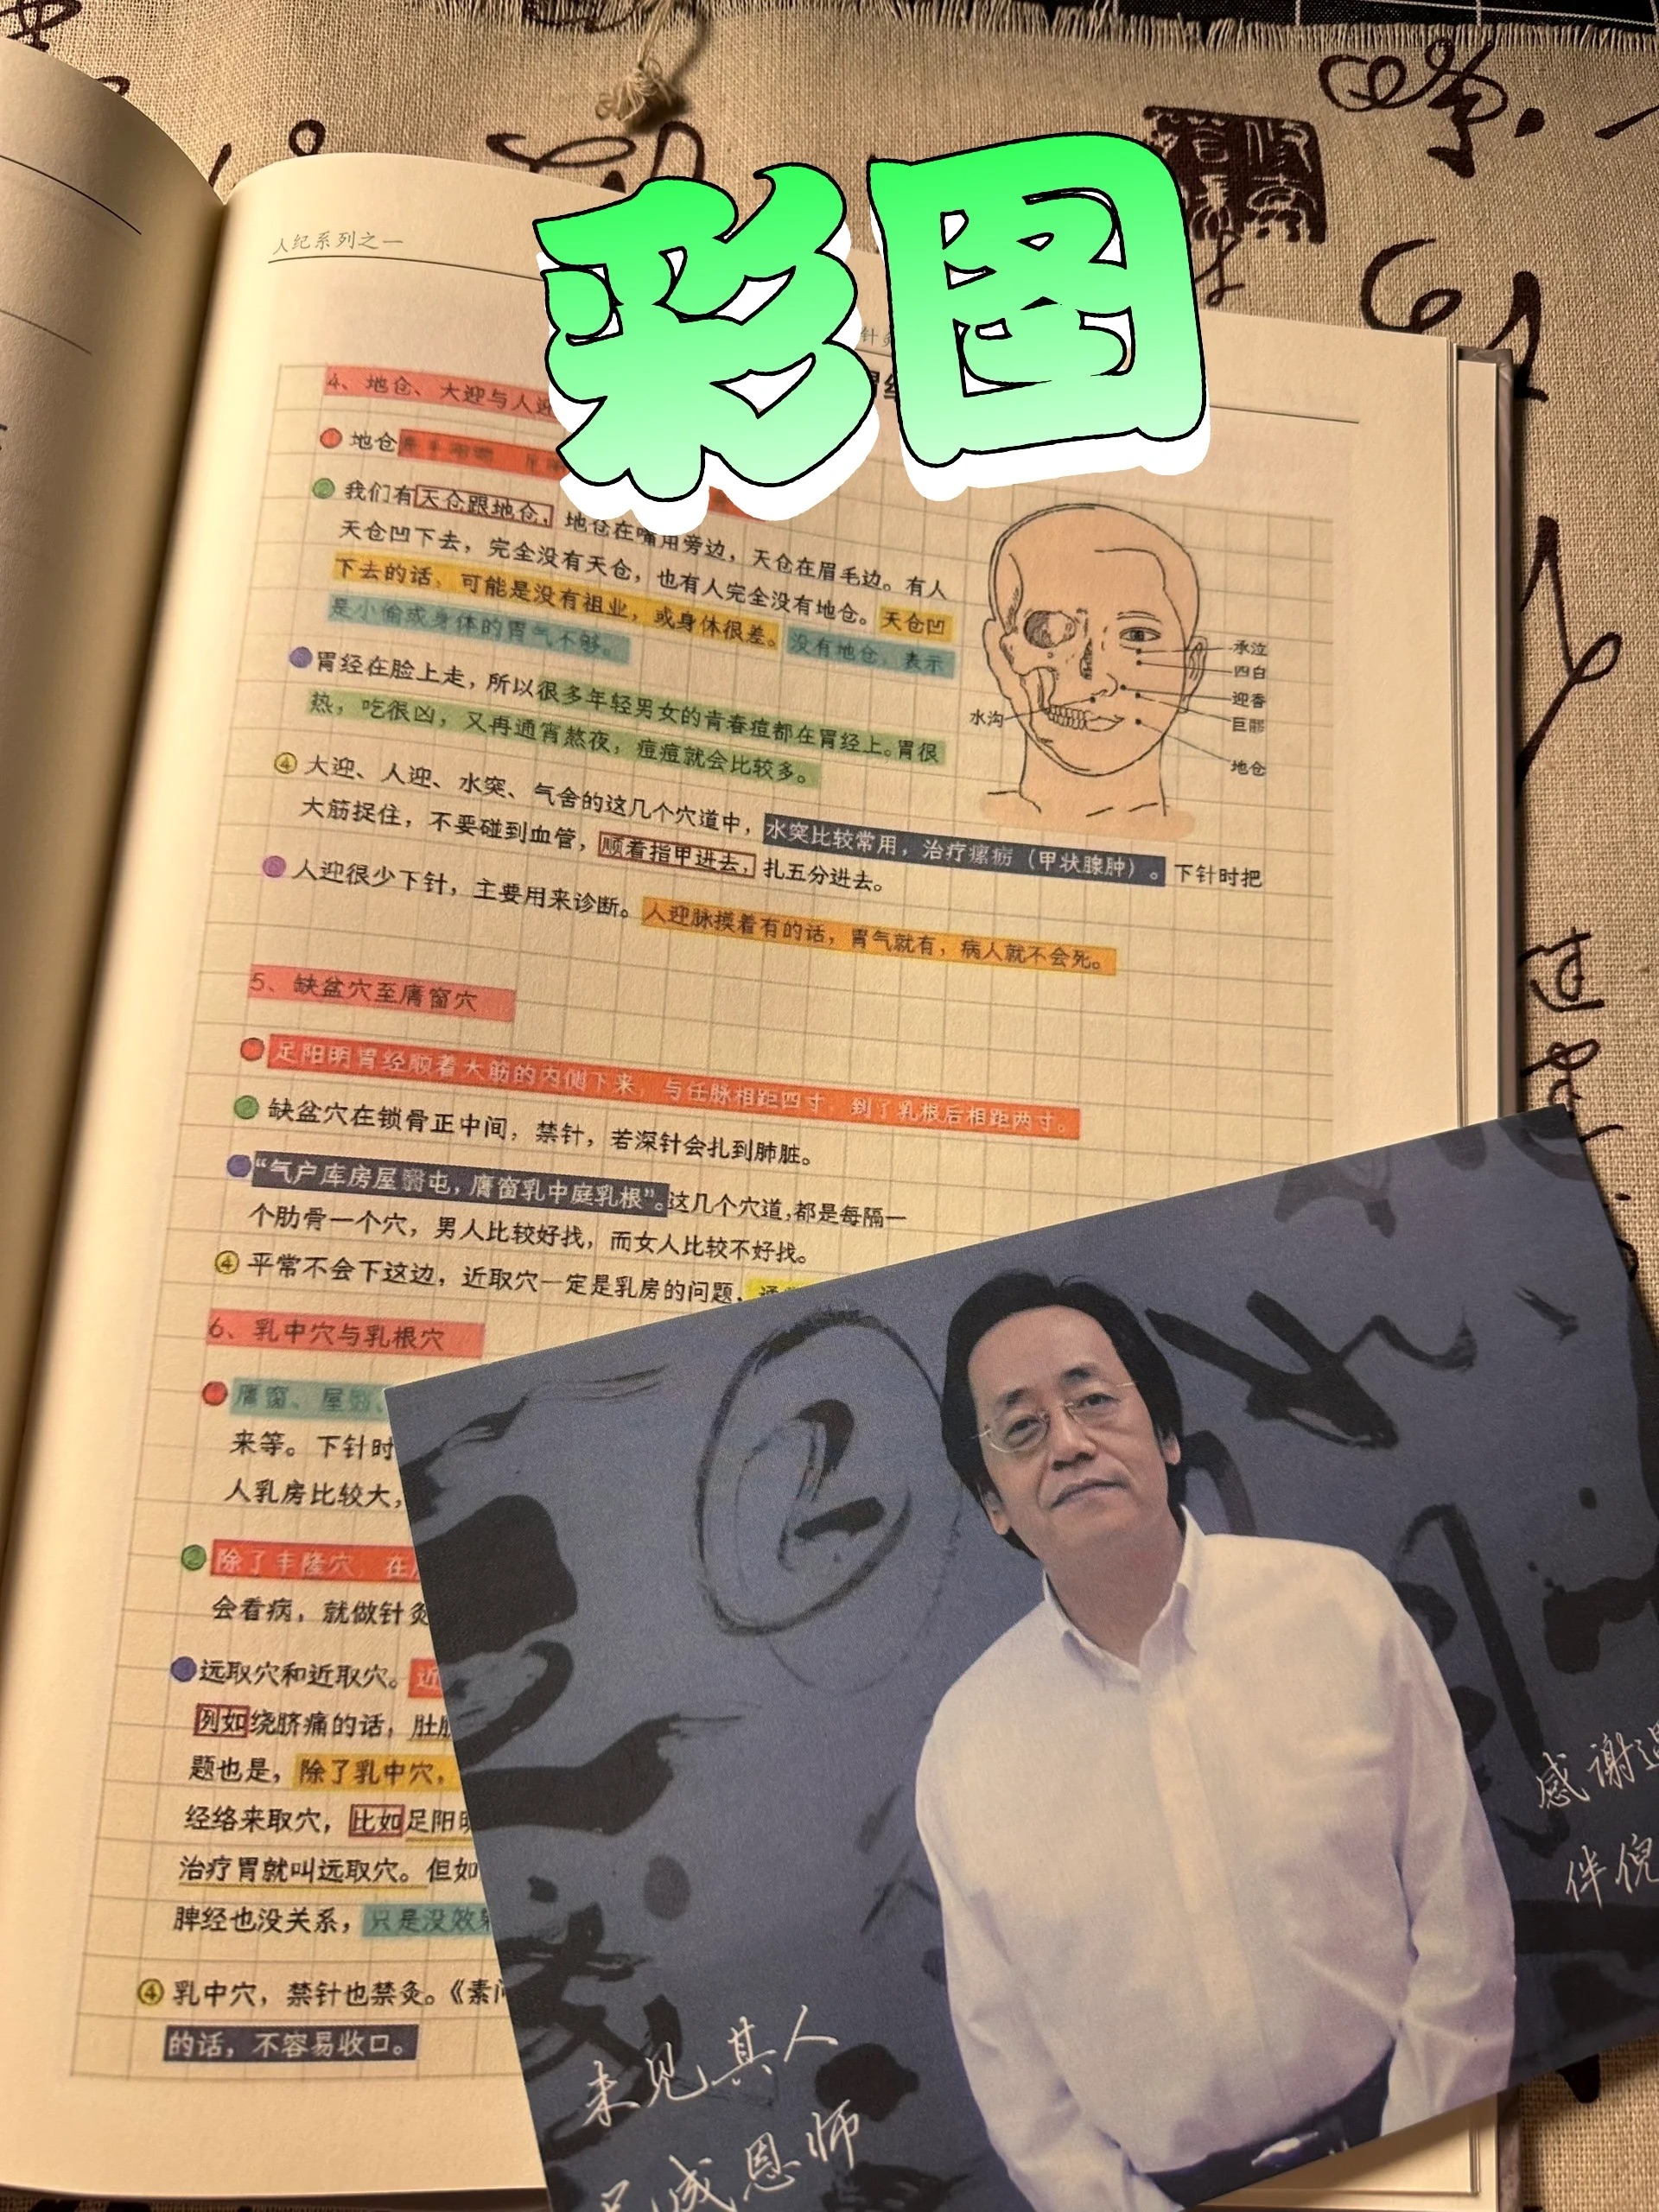 彩图
人纪系列之一
4、地仓、大迎与人迎
地仓
我们有天仓跟地仓，地仓在嘴角旁边，天仓在眉毛边。有人
天仓凹下去，完全没有天仓，也有人完全没有地仓。天仓凹
下去的话，可能是没有祖业，或身体很差。没有地仓，表示
是小偷或身体的胃气不够。
胃经在脸上走，所以很多年轻男女的青春痘都在胃经上。胃很
热，吃很凶，又再通宵熬夜，痘痘就会比较多。
承泣
四白
迎香
巨髎
地仓
水沟
④ 大迎、人迎、水突、气舍的这几个穴道中，水突比较常用，治疗瘰疬（甲状腺肿）。下针时把
大筋捉住，不要碰到血管，顺着指甲进去，扎五分进去。
人迎很少下针，主要用来诊断。人迎脉摸着有的话，胃气就有，病人就不会死。
5、缺盆穴至膺窗穴
足阳明胃经顺着大筋的内侧下来，与任脉相距四寸，到了乳根后相距两寸。
② 缺盆穴在锁骨正中间，禁针，若深针会扎到肺脏。
“气户库房屋翳屯，膺窗乳中庭乳根”。这几个穴道，都是每隔一
个肋骨一个穴，男人比较好找，而女人比较不好找。
④ 平常不会下这边，近取穴一定是乳房的问题，
6、乳中穴与乳根穴
膺窗、屋翳、
来等。下针时
人乳房比较大，
② 除了丰隆穴，在
会看病，就做针灸
远取穴和近取穴。近
列如绕脐痛的话，肚脐
题也是，除了乳中穴，
经络来取穴，比如足阳明
治疗胃就叫远取穴。但如
脾经也没关系，只是没效果
④ 乳中穴，禁针也禁灸。《素问
的话，不容易收口。
未见其人
已成恩师
感谢遇
伴倪